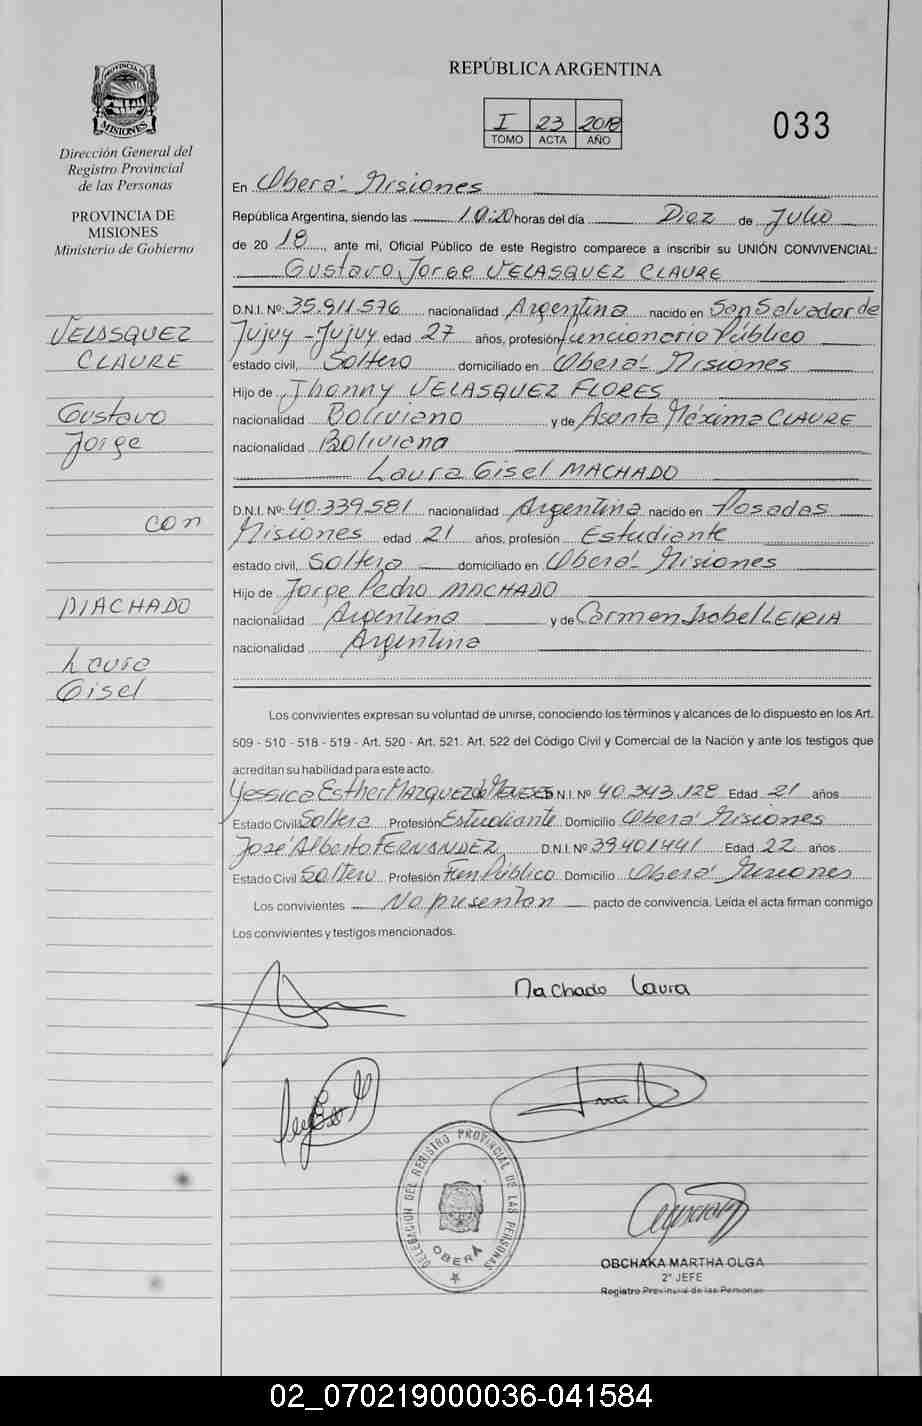 PROVINCIA DE
MISIONES
Dirección General del
Registro Provincial
de las Personas
PROVINCIA DE
MISIONES
Ministerio de Gobierno
VELASQUEZ
CLAURE
Gustavo
Jorge
con
MACHADO
Laura
Gisel
REPÚBLICA ARGENTINA
I 23 2018
TOMO ACTA AÑO
033
En Oberá - Misiones
República Argentina, siendo las 10:20 horas del día Diez de Julio
de 20 18, ante mi, Oficial Público de este Registro comparece a inscribir su UNIÓN CONVIVENCIAL:
Gustavo Jorge VELASQUEZ CLAURE
D.N.I. Nº 35.911.576 nacionalidad Argentina nacido en San Salvador de
Jujuy - Jujuy edad 27 años, profesión funcionario Público
estado civil, Soltero domiciliado en Oberá - Misiones
Hijo de Jhonny VELASQUEZ FLORES
nacionalidad Boliviano y de Asenta Máxima CLAURE
nacionalidad Boliviana
Laura Gisel MACHADO
D.N.I. Nº 40.339.581 nacionalidad Argentina nacido en Posadas
Misiones edad 21 años, profesión Estudiante
estado civil, Soltera domiciliado en Oberá - Misiones
Hijo de Jorge Pedro MACHADO
nacionalidad Argentina y de Carmen Isabel LEIRIA
nacionalidad Argentina
Los convivientes expresan su voluntad de unirse, conociendo los términos y alcances de lo dispuesto en los Art.
509 - 510 - 518 - 519 - Art. 520 - Art. 521. Art. 522 del Código Civil y Comercial de la Nación y ante los testigos que
acreditan su habilidad para este acto.
Yessica Esther MARQUEZ de MENESES D.N.I. Nº 40.343.128 Edad 21 años
Estado Civil Soltera Profesión Estudiante Domicilio Oberá Misiones
José Alberto FERNANDEZ D.N.I. Nº 39401441 Edad 22 años
Estado Civil Soltero Profesión Fun Público Domicilio Oberá Misiones
Los convivientes No presentan pacto de convivencia. Leída el acta firman conmigo
Los convivientes y testigos mencionados.
Machado Laura
DELEGACION DEL REGISTRO PROVINCIAL DE LAS PERSONAS
OBERÁ
OBCHAKA MARTHA OLGA
2° JEFE
Registro Provincial de las Personas
02_070219000036-041584